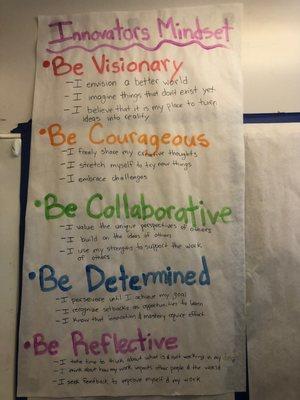 Innovators Mindset
• Be Visionary
- I envision a better world
- I imagine things that don't exist yet
- I believe that it is my place to turn
ideas into reality
• Be Courageous
- I freely share my creative thoughts
- I stretch myself to try new things
- I embrace challenges
• Be Collaborative
- I value the unique perspectives of others
- I build on the ideas of others
- I use my strengths to support the work
of others
• Be Determined
- I persevere until I achieve my goal
- I recognize setbacks as opportunities to learn
- I know that innovation & mastery require effort
• Be Reflective
- I take time to think about what is & not working in my
- I think about how my work impacts other people & the world
- I seek feedback to improve myself & my work